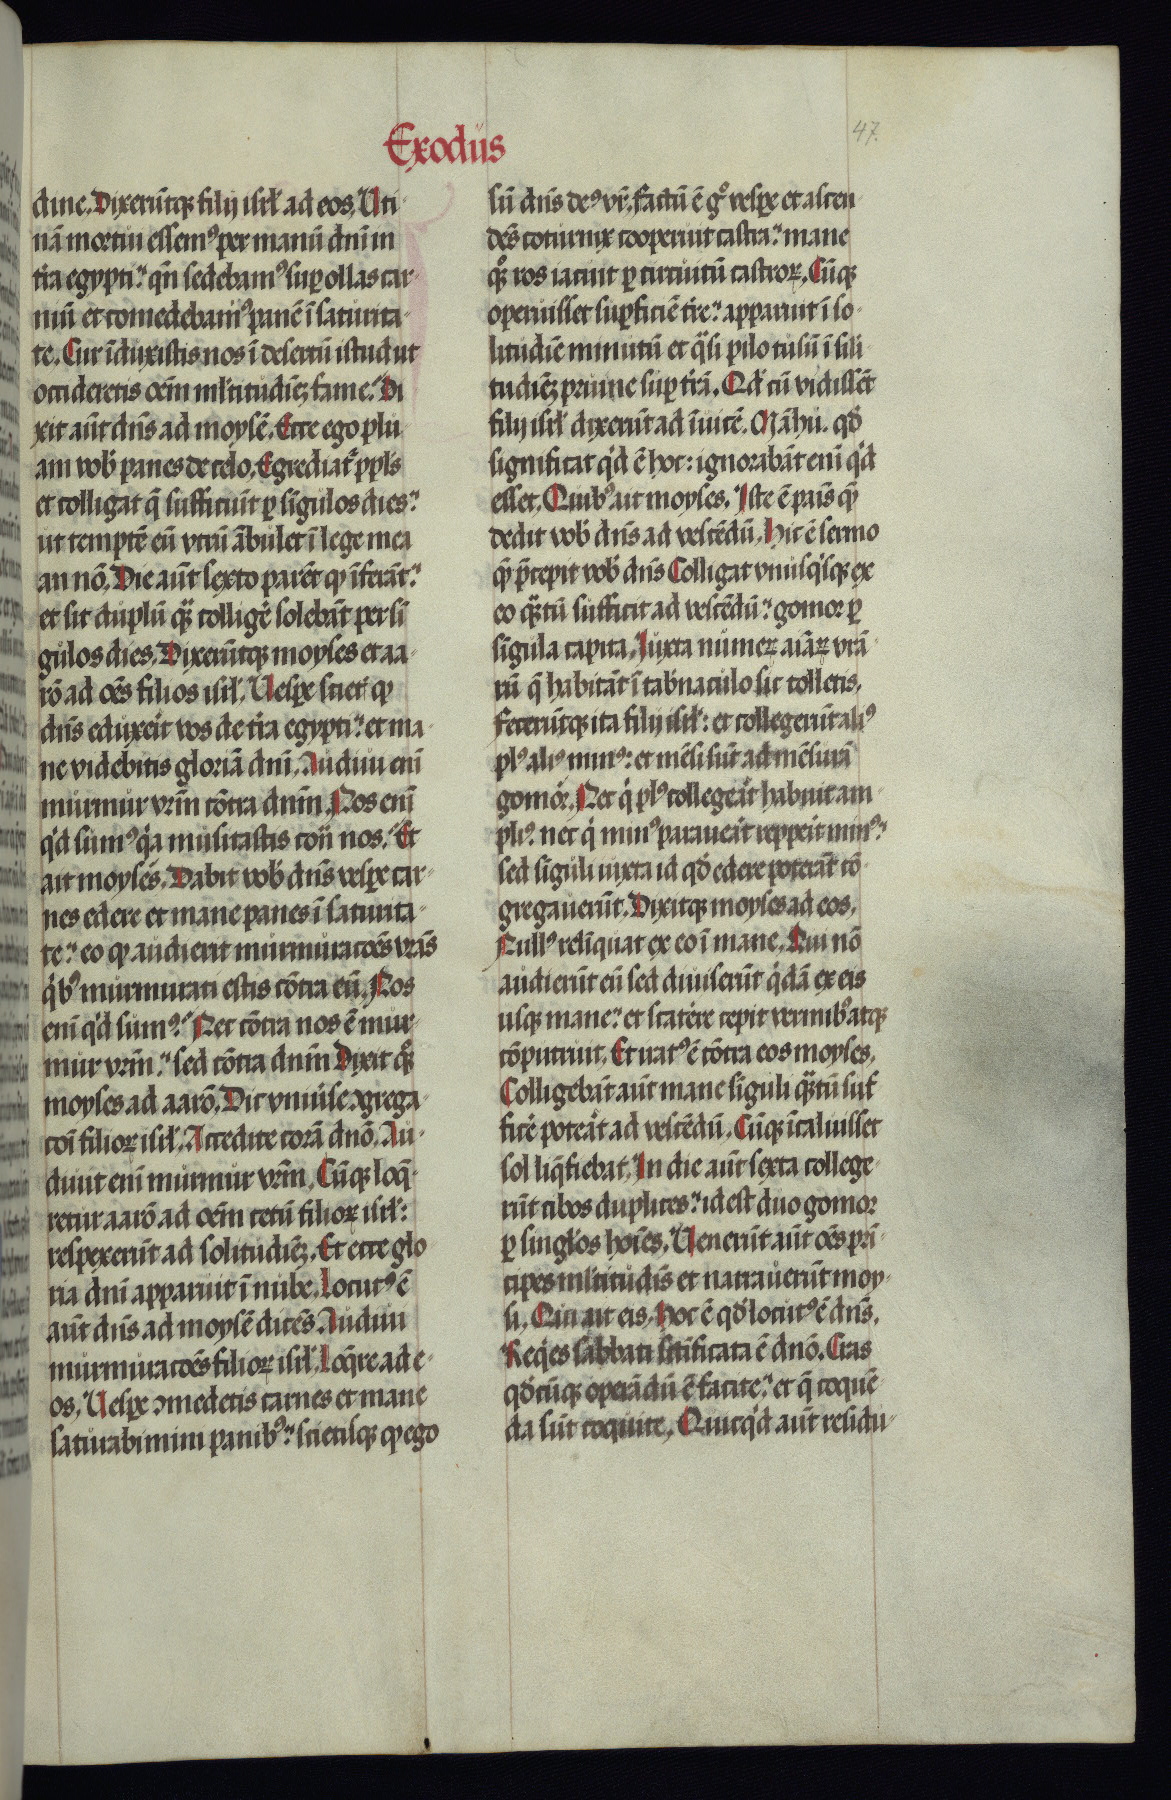 Exodus
47.
dine. Dixerūtqꝫ filij isrł ad eos. Uti
nā mortui essemꝰ per manū dnī in
tr̄a egypti: qn̄ sedebamꝰ suꝑ ollas car
niū et comedebamꝰ panē ī saturita
te. Cur īduxistis nos ī desertū istud ut
occideretis oēm ml̄titudiēꝫ fame. Di
xit aūt dn̄s ad moysē. Ecce ego plu
am vob̄ panes de celo. Egrediat̄ ppl̄s
et colligat q̄ sufficiūt ꝑ sīgulos dies:
ut temptē eū vtrū ābulet ī lege mea
an nō. Die aūt sexto parēt qꝫ īferāt:
et sit duplū qͣꝫ colligē solebāt per sī
gulos dies. Dixerūtqꝫ moyses et aa
rō ad oēs filios isrł. Uespe scietꝭ qꝫ
dn̄s eduxeīt vos de tr̄a egypti: et ma
ne videbitis gloriā dnī. Audiui enī
murmur vrm̄ cōtra dnm̄. Nos enī
qͥd sumꝰ qͥa musitastis cōn̄ nos. Et
ait moyses. Dabit vob̄ dn̄s vespe car
nes edere et mane panes ī saturita
te: eo qꝫ audierit murmuratōēs vrās
qͥbꝰ murmurati estis cōtra eū. Nos
enī qͥd sumꝰ: Nec cōtra nos ē mur
mur vrm̄: sed cōtra dnm̄ Dixit qͦꝫ
moyses ad aarō. Dic vniūse ꝯgrega
cōī filioꝝ isrł. Accedite corā dnō. Au
diuit enī murmur vrm̄. Cūqꝫ loq̄
retur aarō ad oēm cetū filioꝝ isrł:
respexerūt ad solitudiēꝫ. Et ecce glo
ria dnī apparuit ī nube. Locutꝰ ē
aūt dn̄s ad moysē dicēs. Audiui
murmuratōēs filioꝝ isrł. Loq̄re ad e
os. Uespe ꝯmedetis carnes et mane
saturabimini panibꝰ: scietisqꝫ qꝫ ego
sū dn̄s deꝰ vr̄. factū ē gͦ vespe et ascen
dēs coturnix cooperuit castra: mane
qͦꝫ ros iacuit ꝑ circuitū castroꝝ. Cūqꝫ
operuisset suꝑficiē tr̄e: apparuit ī so
litudiē minutū et qͣsi pilo tusū ī sili
tudiēꝫ pruine suꝑ tr̄ā. Qd̄ cū vidissēt
filij isrł dixerūt ad īuicē. Mā hu. qd̄
significat qͥd ē hoc: ignorabāt enī qͥd
esset. Quibꝰ ait moyses. Iste ē pāis qꝫ
dedit vob̄ dn̄s ad vescēdū. Hic ē sermo
qꝫ p̄cepit vob̄ dn̄s Colligat vnusqͥsqꝫ ex
eo qͣꝫtū sufficit ad vescēdū: gomor ꝑ
sīgula capita. Iuxta numeꝝ aīaꝝ vrā
rū q̄ habitāt ī tab̄naculo sic tolletis.
Fecerūtqꝫ ita filij isrł: et collegerūt aliꝰ
plꝰ aliꝰ minꝰ: et mēsi sūt ad mēsurā
gomor. Nec qͥ plꝰ collegeāt habuit am
pliꝰ. nec qͥ minꝰ paraueāt reppeīt minꝰ:
sed sīguli iuxta id qd̄ edere poterāt cō
gregauerūt. Dixitqꝫ moyses ad eos.
Nullꝰ relīquat ex eo ī mane. Qui nō
audierūt eū sed diuiserūt qͥdā ex eis
usqꝫ mane: et scatere cepit vermibꝰ atqꝫ
cōputruit. Et iratꝰ ē cōtra eos moyses.
Colligebāt aūt mane sīguli qͣꝫtū suf
ficē poteāt ad vescēdū. Cūqꝫ īcaluisset
sol liq̄fiebat. In die aūt sexta college
rūt cibos duplices: id est duo gomor
ꝑ singl̄os hoīes. Uenerūt aūt oēs prī
cipes ml̄titudīs et narrauerūt moy
si. Qui ait eis. Hoc ē qd̄ locutꝰ ē dn̄s.
Reqͥes sabbati sctīficata ē dnō. Cras
qd̄cūqꝫ operādū ē facite: et q̄ coquē
da sūt coquite. Quicqͥd aūt residu